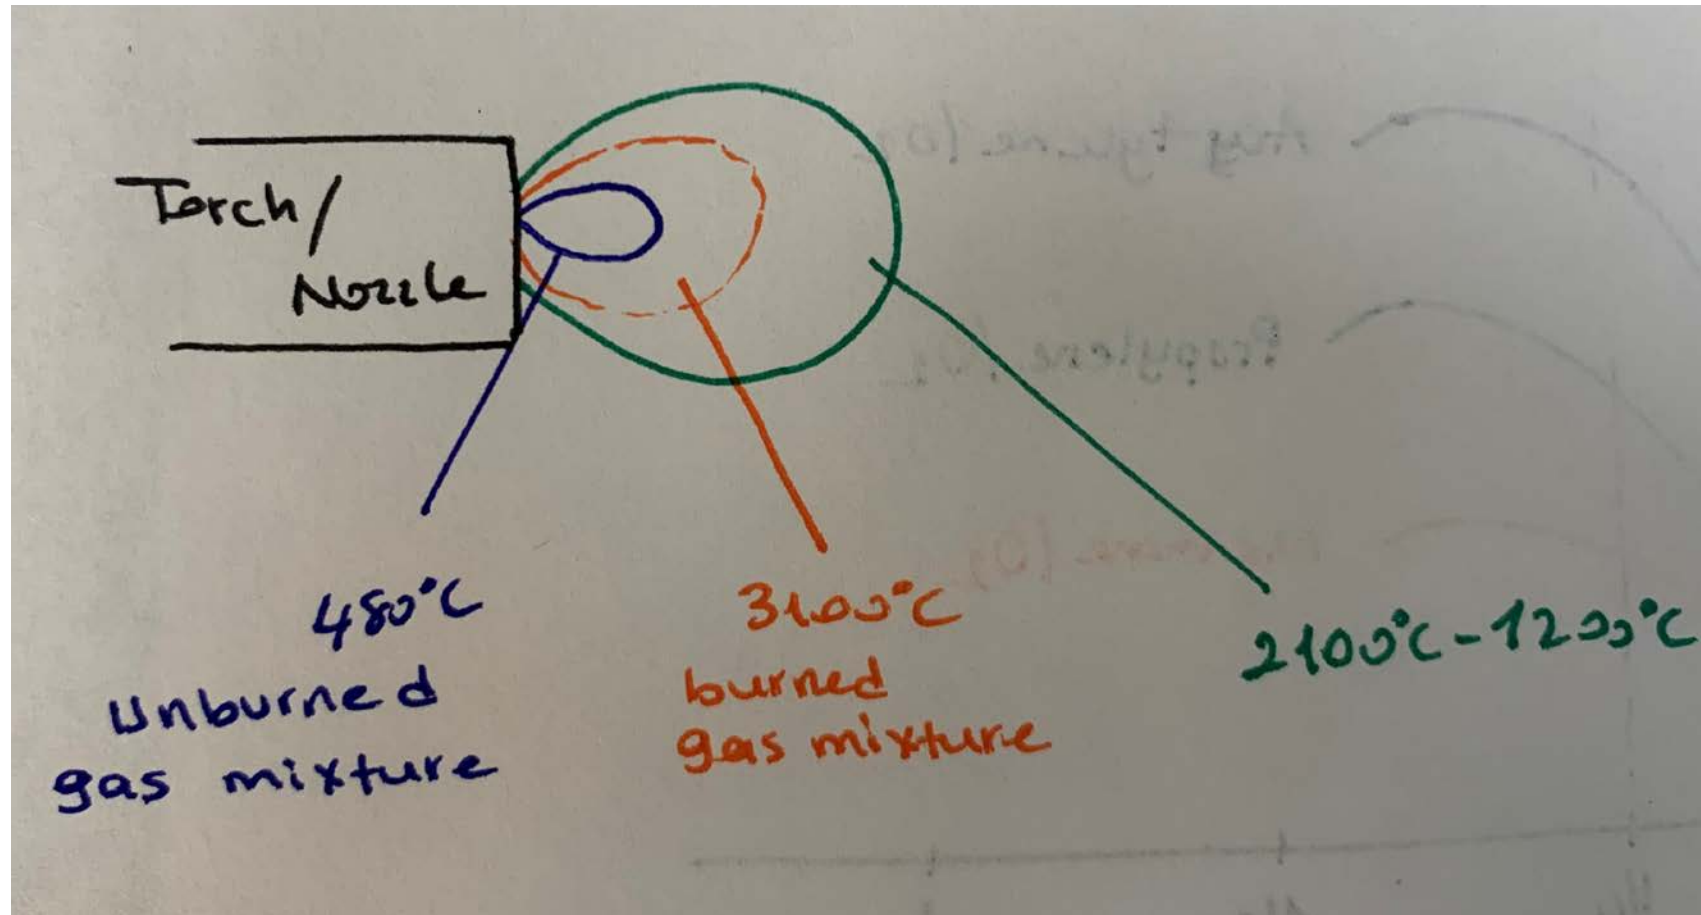 Torch/
Nozzle
480°C
Unburned
gas mixture
3100°C
burned
gas mixture
2100°C-1200°C
Propylene/O2